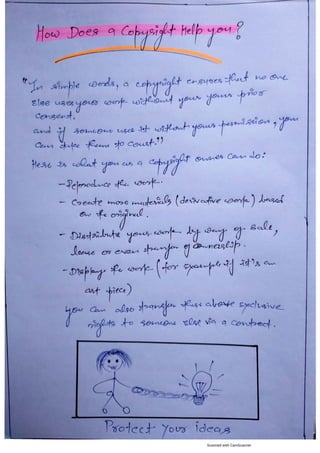 How Does a Copyright Help you?
"In simple words, a copyright ensures that no one
else uses your work without your yours prior
consent.
and if someone uses it without yours permission, you
can take them to court."
Here is what you as a copyright owner can do:
- Reproduce the work.
- Create more materials (derivative works) based
on the original.
- Distribute your work by way of sale,
lease or even transfer of ownership.
- Display the work (for example if it's an
art piece)
you can also transfer the above exclusive
rights to someone else via a contract.
Protect Your ideas
Scanned with CamScanner